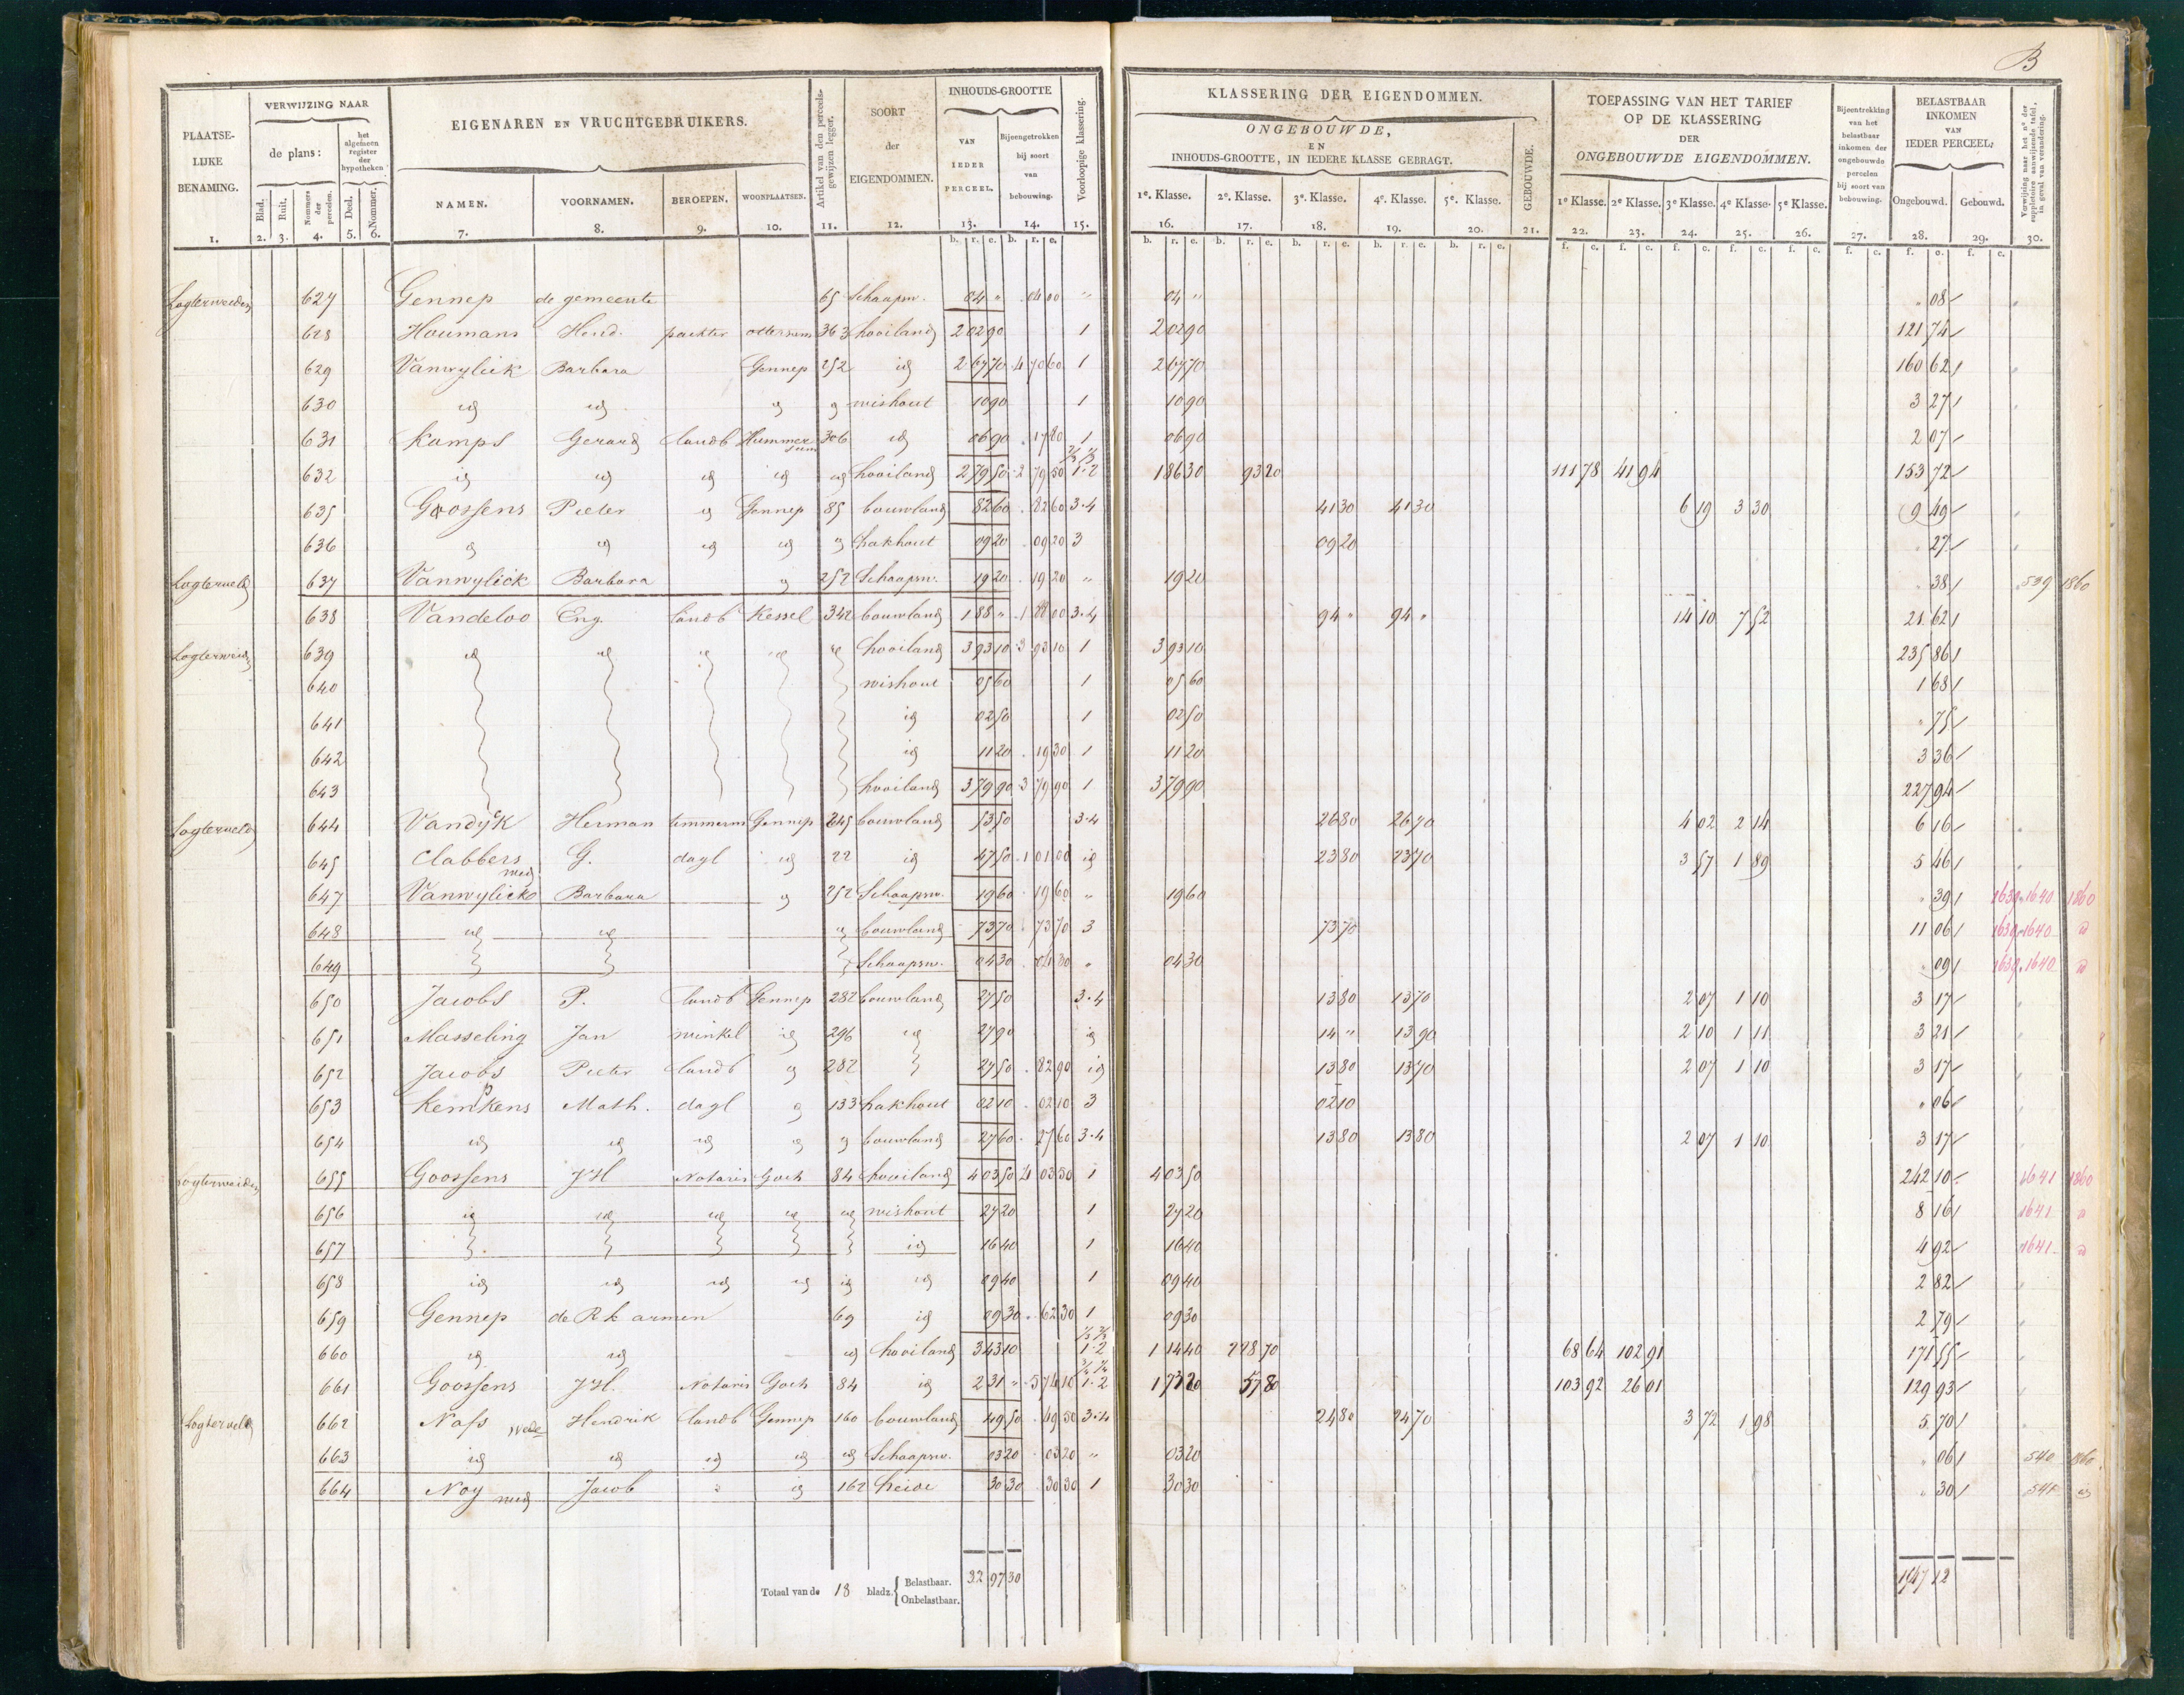 B
PLAATSE-LIJKE BENAMING.
VERWIJZING NAAR
de plans:
het algemeen register der hypotheken
Blad. Ruit. Nommers der percelen. Deel. Nommer.
EIGENAREN EN VRUCHTGEBRUIKERS.
NAMEN. VOORNAMEN. BEROEPEN. WOONPLAATSEN.
Artikel van den perceels-gewijzen legger.
SOORT der EIGENDOMMEN.
INHOUDS-GROOTTE
VAN IEDER PERCEEL.
Bijeengetrokken bij soort van bebouwing.
Voorloopige klassering.
KLASSERING DER EIGENDOMMEN.
ONGEBOUWDE,
EN
INHOUDS-GROOTTE, IN IEDERE KLASSE GEBRAGT.
1e. Klasse. 2e. Klasse. 3e. Klasse. 4e. Klasse. 5e. Klasse.
GEBOUWDE.
TOEPASSING VAN HET TARIEF
OP DE KLASSERING
DER
ONGEBOUWDE EIGENDOMMEN.
1e Klasse. 2e Klasse. 3e Klasse. 4e Klasse. 5e Klasse.
Bijeentrekking van het belastbaar inkomen der ongebouwde percelen bij soort van bebouwing.
BELASTBAAR INKOMEN VAN IEDER PERCEEL;
Ongebouwd. Gebouwd.
Verwijzing naar het no. der suppletoire aanwijzende tafel, in geval van verandering.
1. 2. 3. 4. 5. 6. 7. 8. 9. 10. 11. 12. 13. 14. 15. 16. 17. 18. 19. 20. 21. 22. 23. 24. 25. 26. 27. 28. 29. 30.
Logterweiden 627 Gennep de gemeente 65 Schaapsw. 04 " 04 00 " 04 " " 08
628 Houmans Hend. pachter ottersum 363 hooiland 2 02 90 1 2 02 90 121 74
629 Vanwylick Barbara Gennep 252 id 2 67 70 4 70 60 1 2 67 70 160 62
630 id id id id wishout 10 90 1 10 90 3 27
631 Kamps Gerard landb Hommersum 306 id 06 90 17 80 1 06 90 2 07
632 id id id id id hooiland 2 79 50 2 79 50 2/3 1/3 1-2 1 86 30 93 20 111 78 41 94 153 72
635 Goossens Pieter id Gennep 85 bouwland 82 60 82 60 3-4 41 30 41 30 6 19 3 30 9 49
636 id id id id id hakhout 09 20 09 20 3 09 20 " 27
Logterveld 637 Vanwylick Barbara id 252 Schaapsw. 19 20 19 20 " 19 20 " 38 539 1860
638 Vandeloo Eng. landb Kessel 342 bouwland 1 88 " 1 88 00 3-4 94 " 94 " 14 10 7 52 21 62
Logterweid 639 id id id id id hooiland 3 93 10 3 93 10 1 3 93 10 235 86
640 wishout 05 60 1 05 60 1 68
641 id 02 50 1 02 50 " 75
642 id 11 20 19 30 1 11 20 3 36
643 hooiland 3 79 90 3 79 90 1 3 79 90 227 94
Logterveld 644 Vandyk Herman timmerm Gennep 245 bouwland 53 50 3-4 26 80 26 70 4 02 2 14 6 16
645 Clabbers G. dagl id 22 id 47 50 1 01 00 id 23 80 23 70 3 57 1 89 5 46
647 Vanwylick wed Barbara id 252 Schaapsw. 19 60 19 60 " 19 60 " 39 1639.1640 1860
648 id id id bouwland 73 70 73 70 3 73 70 11 06 1639.1640 id
649 Schaapsw. 04 30 04 30 " 04 30 " 09 1639.1640 id
650 Jacobs P. landb Gennep 282 bouwland 27 50 3-4 13 80 13 70 2 07 1 10 3 17
651 Masseling Jan winkel id 296 id 27 90 id 14 " 13 90 2 10 1 11 3 21
652 Jacobs Pieter landb id 282 27 50 82 90 id 13 80 13 70 2 07 1 10 3 17
653 Kempkens Math. dagl id 133 hakhout 02 10 02 10 3 02 10 " 06
654 id id id id id bouwland 27 60 27 60 3-4 13 80 13 80 2 07 1 10 3 17
Logterweiden 655 Goossens JH Notaris Goch 84 hooiland 4 03 50 4 03 50 1 4 03 50 242 10 1641 1860
656 id id id id id wishout 27 20 1 27 20 8 16 1641 id
657 id 16 40 1 16 40 4 92 1641 id
658 id id id id id id 09 40 1 09 40 2 82
659 Gennep de R k armen 69 id 09 30 62 30 1 09 30 2 79
660 id id id hooiland 3 43 10 1/3 2/3 1-2 1 14 40 2 28 70 68 64 102 91 171 55
661 Goossens JH. Notaris Goch 84 id 2 31 " 5 74 10 3/4 1/4 1-2 1 73 20 57 80 103 92 26 01 129 93
Logterveld 662 Nass wede Hendrik landb Gennep 160 bouwland 49 50 49 50 3-4 24 80 24 70 3 72 1 98 5 70
663 id id id id id Schaapsw. 03 20 03 20 " 03 20 " 06 540 1860
664 Noy wed Jacob id 162 heide 30 30 30 30 1 30 30 " 30 541 id
Totaal van de 18 bladz. { Belastbaar. 32 97 30 1947 12
Onbelastbaar.